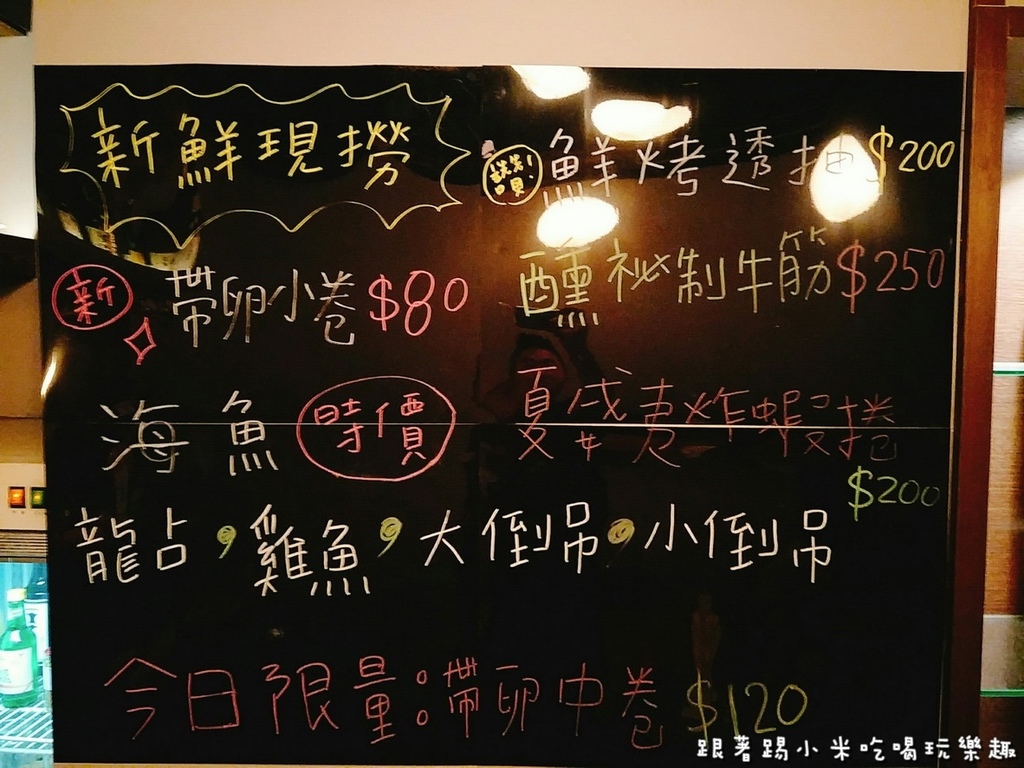 新鮮現撈
讚 鮮烤透抽$200
新 帶卵小卷$80
醺祕制牛筋$250
海魚 時價
夏威夷炸蝦捲
$200
龍占,雞魚,大倒吊,小倒吊
今日限量:帶卵中卷$120
跟著踢小米吃喝玩樂趣